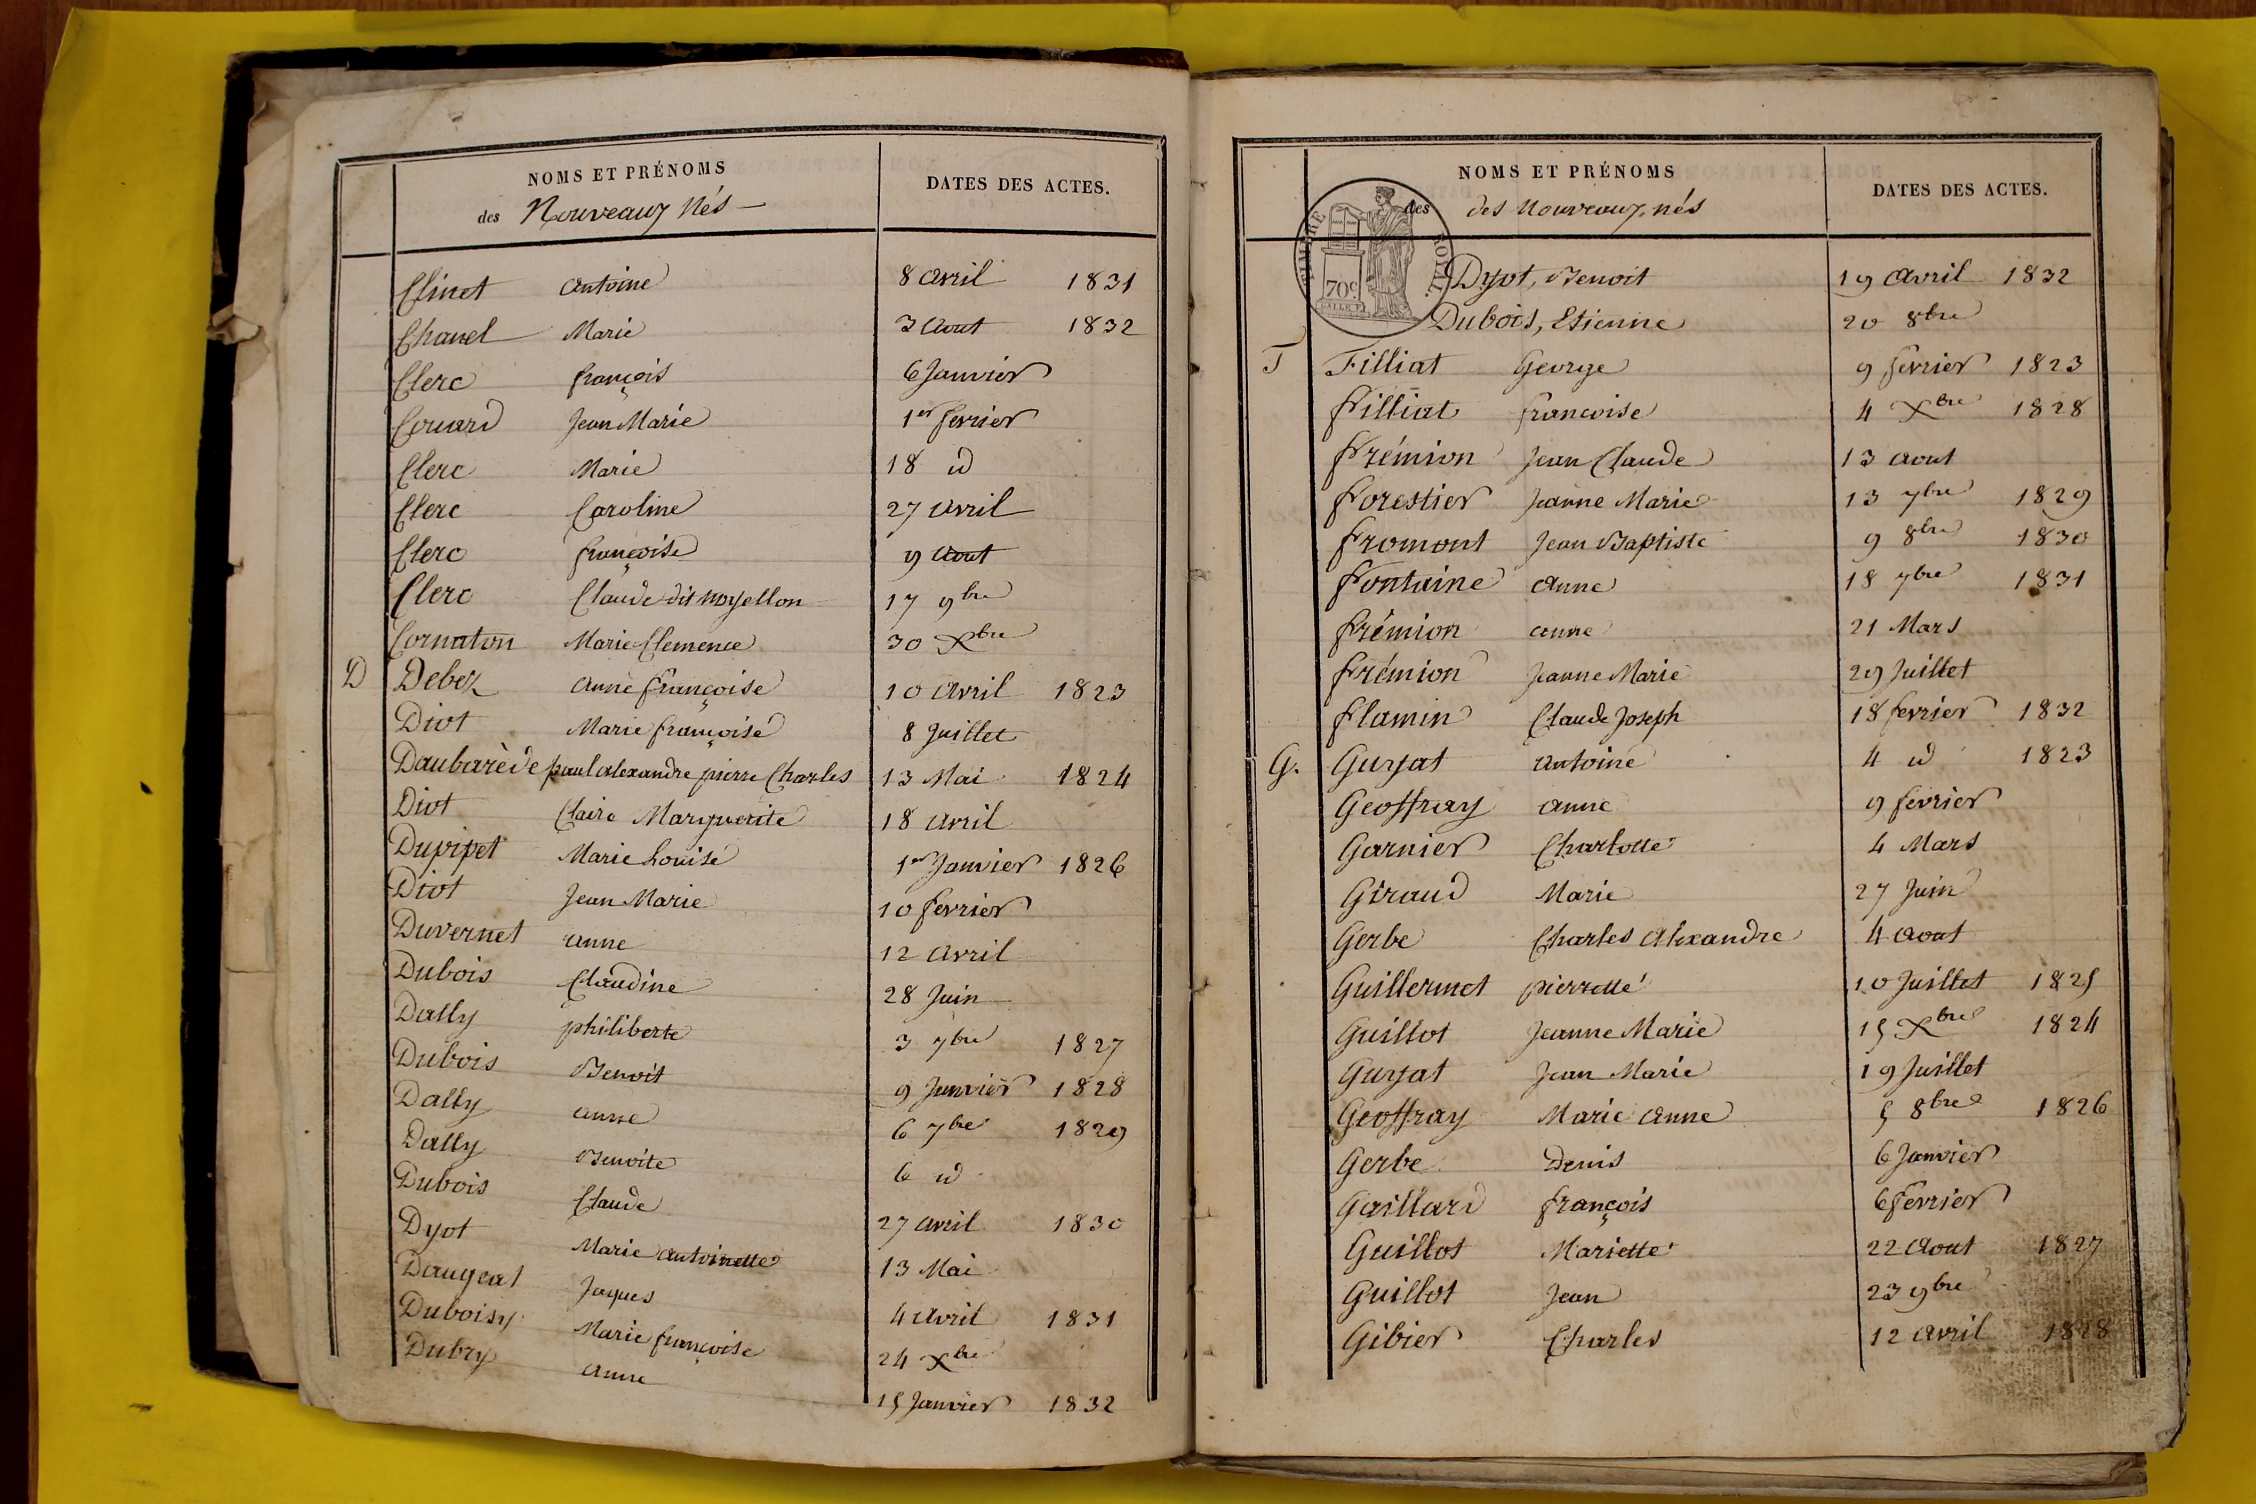 NOMS ET PRÉNOMS
des Nouveaux Nés
DATES DES ACTES.
Clinet Antoine 8 avril 1831
Chanel Marie 3 aout 1832
Clerc françois 6 Janvier
Couard Jean Marie 1er fevrier
Clerc Marie 18 id
Clerc Caroline 27 avril
Clerc françoise 9 aout
Clerc Claude dit noyellon 17 9bre
Cornaton Marie Clemence 30 Xbre
D Debez anne françoise 10 avril 1823
Diot Marie françoise 8 Juillet
Daubarède paul alexandre pierre Charles 13 Mai 1824
Diot Claire Marguerite 18 avril
Dupipet Marie Louise 1er Janvier 1826
Diot Jean Marie 10 fevrier
Duvernet anne 12 avril
Dubois Claudine 28 Juin
Dally philiberte 3 7bre 1827
Dubois Benoit 9 Janvier 1828
Dally anne 6 7bre 1829
Dally Benoite 6 id
Dubois Claude 27 avril 1830
Dyot Marie antoinette 13 Mai
Daugeat Jaques 4 avril 1831
Duboisy Marie françoise 24 Xbre
Dubry anne 15 Janvier 1832
NOMS ET PRÉNOMS
des des nouveaux nés
DATES DES ACTES.
TIMBRE ROYAL.
70c
Dyot, Benoit 19 avril 1832
Dubois, Etienne 20 8bre
F Filliat George 9 fevrier 1823
filliat francoise 4 Xbre 1828
frémion Jean Claude 13 aout
forestier Jeanne Marie 13 7bre 1829
fromont Jean Baptiste 9 8bre 1830
fontaine anne 18 7bre 1831
frémion anne 21 Mars
frémion Jeanne Marie 29 Juillet
flamin Claude Joseph 18 fevrier 1832
G. Guyat antoine 4 id 1823
Geoffray anne 9 fevrier
Garnier Charlotte 4 Mars
Giraud Marie 27 Juin
Gerbe Charles Alexandre 4 aout
Guillermet pierrette 10 Juillet 1825
Guillot Jeanne Marie 15 Xbre 1824
Guyat Jean Marie 19 Juillet
Geoffray Marie Anne 5 8bre 1826
Gerbe Denis 6 Janvier
Gaillard françois 6 fevrier
Guillot Mariette 22 Aout 1827
Guillot Jean 23 9bre
Gibier Charles 12 avril 1828